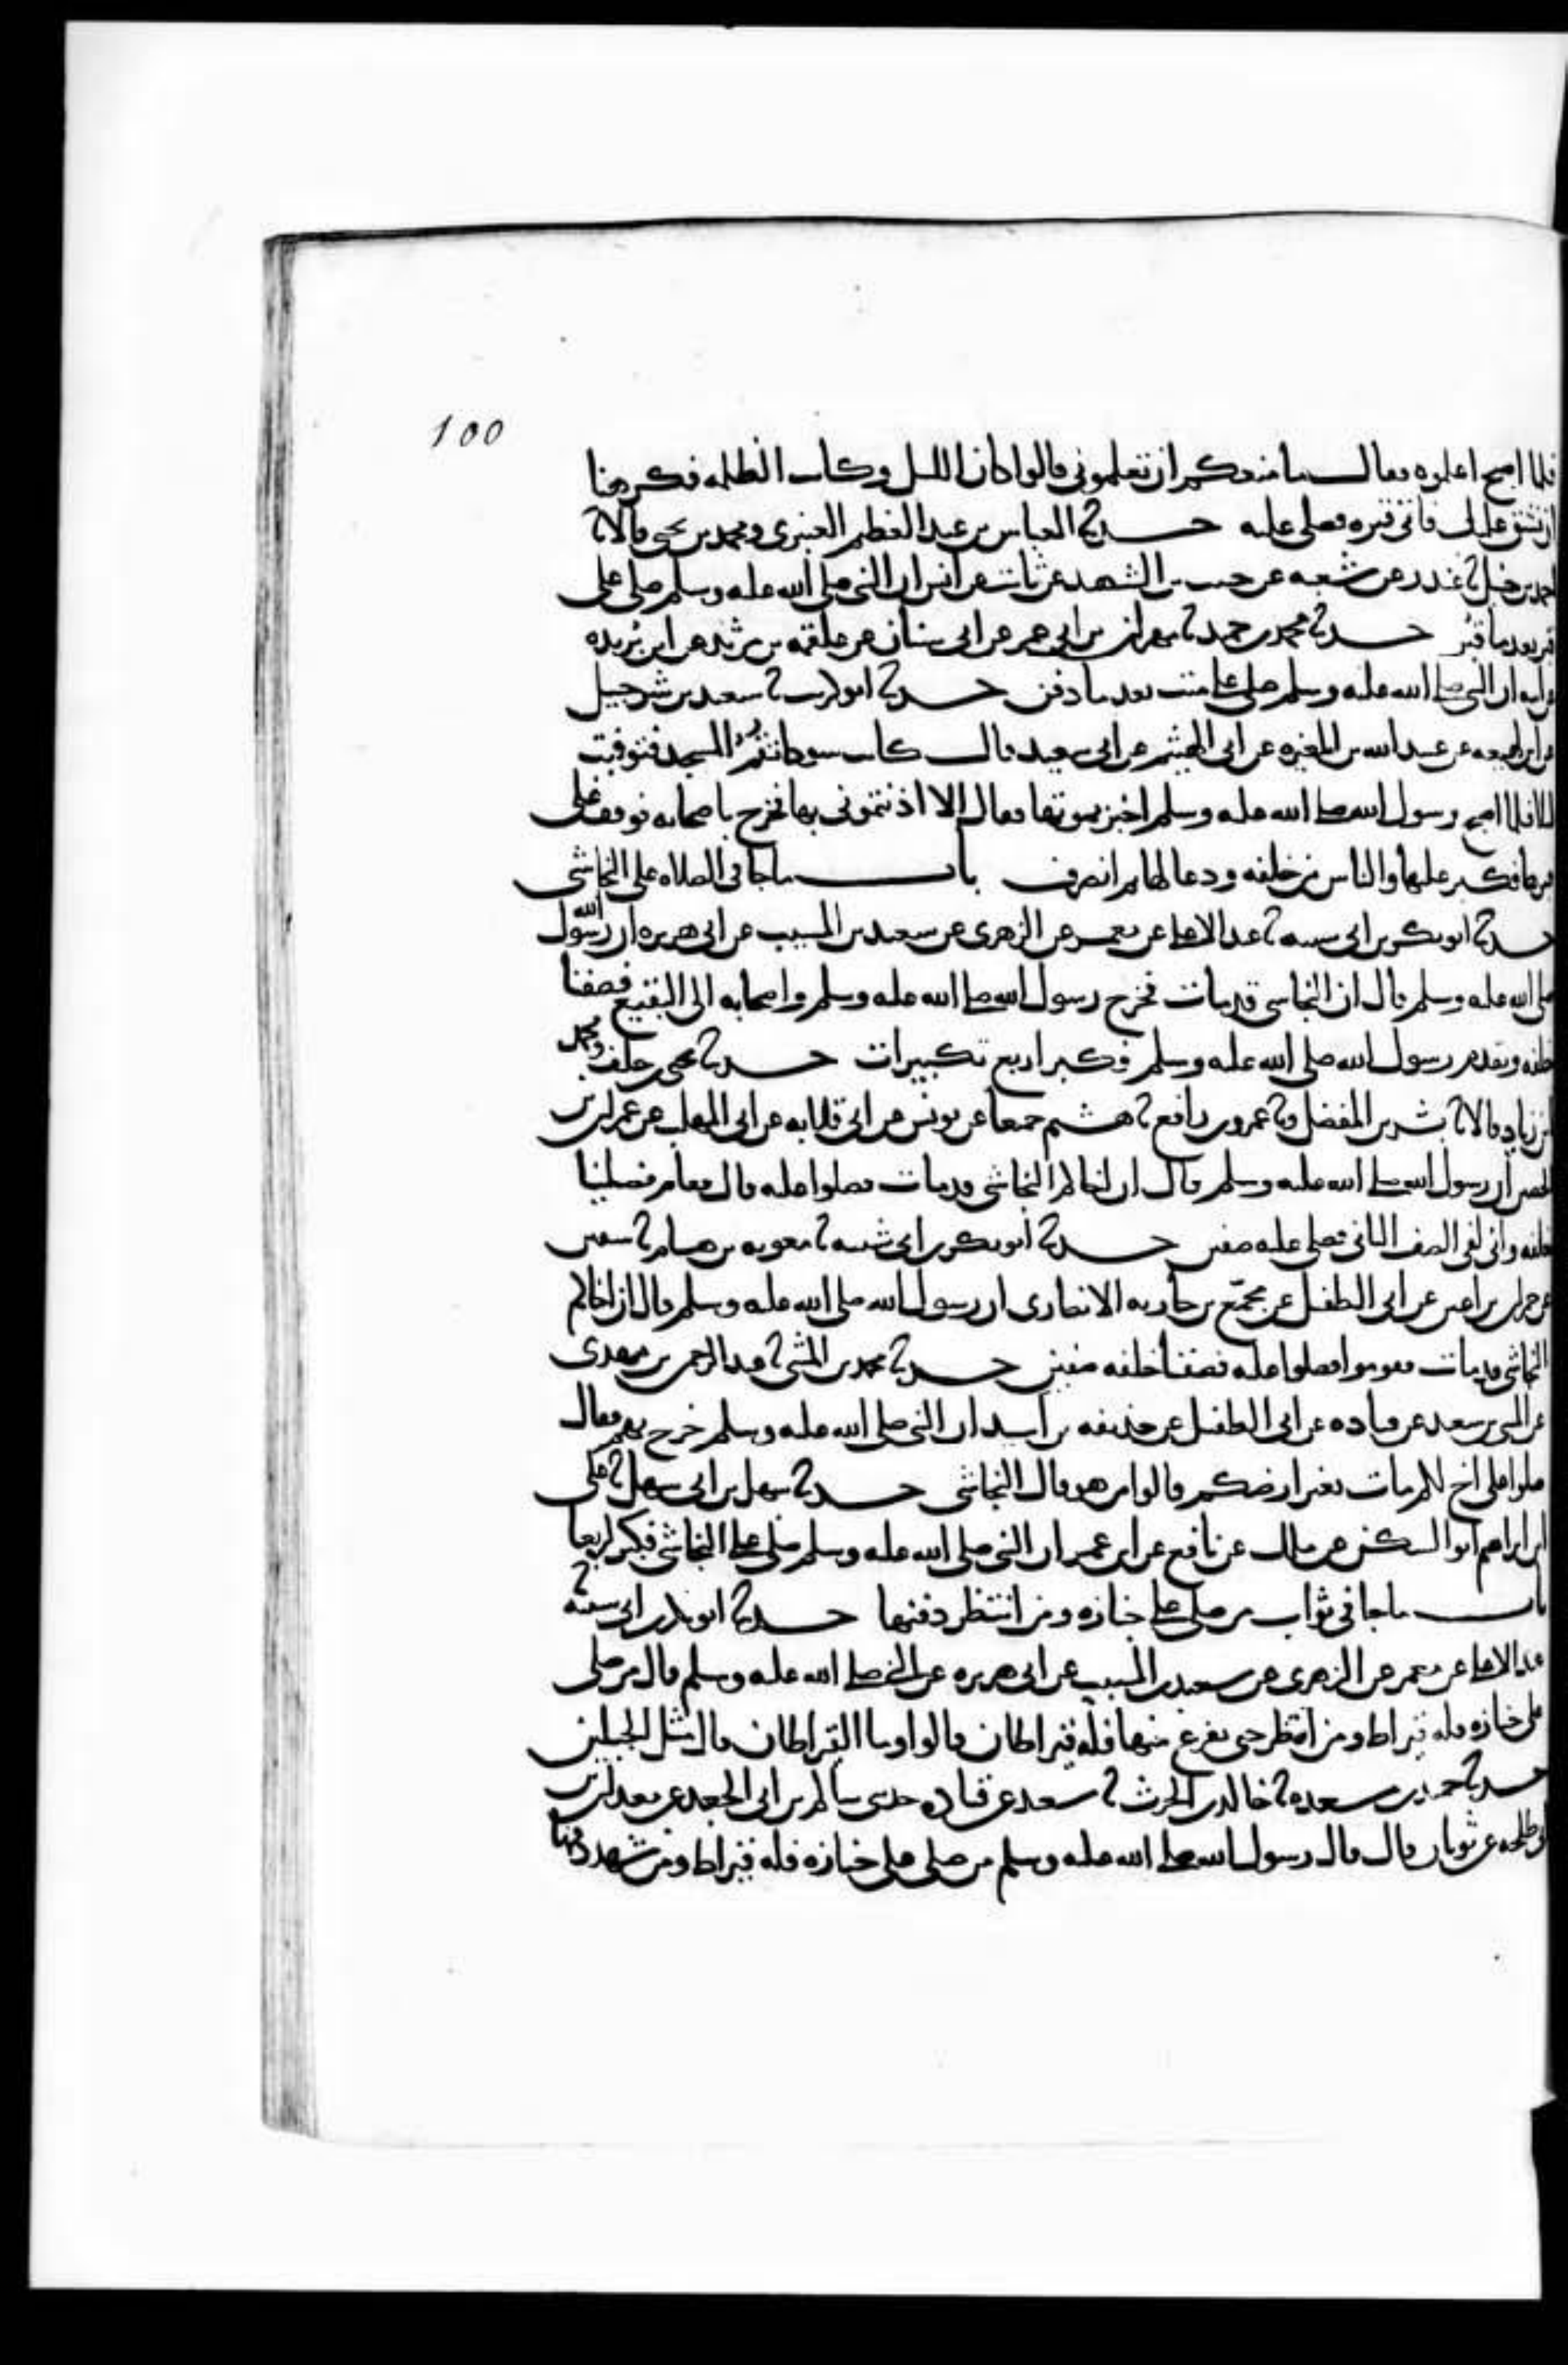 100
فلما اصبح اعلموه فقال ما منعكم ان تعلموني قالوا كان الليل وكانت الظلمه فكرهنا
ان نشق عليك فاتى قبره فصلى عليه حدثنا العباس بن عبد العظيم العنبري ومحمد بن يحيى قالا ثنا
احمد بن حنبل ثنا غندر عن شعبه عن حبيب بن الشهيد عن ثابت عن انس ان النبي صلى الله عليه وسلم صلى على
قبر بعد ما قبر حدثنا محمد بن حميد ثنا مهران بن ابي عمر عن ابي سنان عن علقمه بن مرثد عن ابن بريده
عن ابيه ان النبي صلى الله عليه وسلم صلى على ميت بعد ما دفن حدثنا ابو كريب ثنا سعيد بن شرحبيل
عن ابن لهيعه عن عبيد الله بن المغيره عن ابي الهيثم عن ابي سعيد قال كانت سودا تقم المسجد فتوفيت
ليلا فلما اصبح رسول الله صلى الله عليه وسلم اخبر بموتها فقال الا اذنتموني بها فخرج باصحابه فوقف على
قبرها فكبر عليها والناس من خلفه ودعا لها ثم انصرف باب ما جا في الصلاه على النجاشي
حدثنا ابو بكر بن ابي شيبه ثنا عبد الاعلى عن معمر عن الزهري عن سعيد بن المسيب عن ابي هريره ان رسول الله
صلى الله عليه وسلم قال ان النجاشي قد مات فخرج رسول الله صلى الله عليه وسلم واصحابه الى البقيع فصفنا
خلفه وتقدم رسول الله صلى الله عليه وسلم فكبر اربع تكبيرات حدثنا يحيى بن خلف ومحمد
بن زياد قالا ثنا بشر بن المفضل وثنا عمرو بن رافع ثنا هشيم جميعا عن يونس عن ابي قلابه عن ابي المهلب عن عمران بن
الحصين ان رسول الله صلى الله عليه وسلم قال ان اخاكم النجاشي قد مات فصلوا عليه قال فقام فصلينا
خلفه واني لفي الصف الثاني فصلى عليه صفين حدثنا ابو بكر بن ابي شيبه ثنا معويه بن هشام ثنا سفين
عن حمران بن اعين عن ابي الطفيل عن مجمع بن جاريه الانصاري ان رسول الله صلى الله عليه وسلم قال ان اخاكم
النجاشي قد مات فقوموا فصلوا عليه فصففنا خلفه صفين حدثنا محمد بن المثنى ثنا عبد الرحمن بن مهدي
عن المثنى بن سعيد عن قتاده عن ابي الطفيل عن حذيفه بن اسيد ان النبي صلى الله عليه وسلم خرج بهم فقال
صلوا على اخ لكم مات بغير ارضكم قالوا من هو قال النجاشي حدثنا سهل بن ابي سهل ثنا مكي
ابن ابراهيم ابو السكن عن مالك عن نافع عن ابن عمر ان النبي صلى الله عليه وسلم صلى على النجاشي فكبر اربعا
باب ما جا في ثواب من صلى على جنازه ومن انتظر دفنها حدثنا ابو بكر بن ابي شيبه ثنا
عبد الاعلى عن معمر عن الزهري عن سعيد بن المسيب عن ابي هريره عن النبي صلى الله عليه وسلم قال من صلى
على جنازه فله قيراط ومن انتظر حتى يفرغ منها فله قيراطان قالوا وما القيراطان قال مثل الجبلين
حدثنا حميد بن مسعده ثنا خالد بن الحرث ثنا سعيد عن قتاده حدثني سالم بن ابي الجعد عن معدان بن
ابي طلحه عن ثوبان قال قال رسول الله صلى الله عليه وسلم من صلى على جنازه فله قيراط ومن شهد دفنها